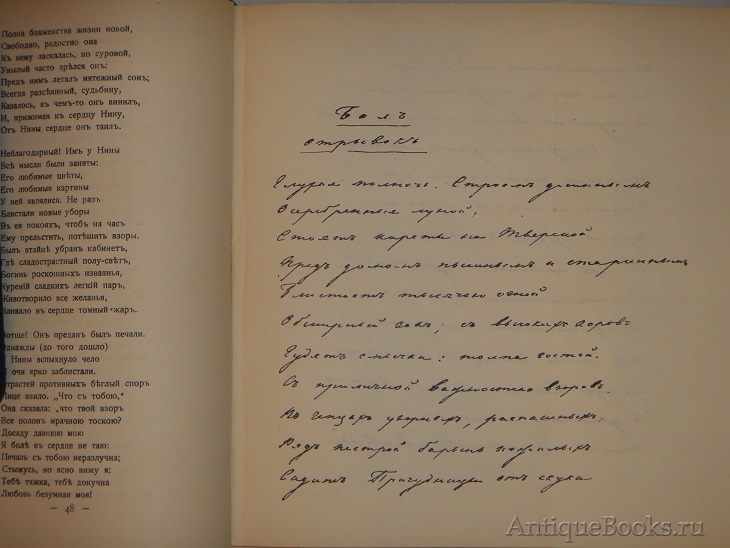 Полна блаженства жизни новой,
Свободно, радостно она
Къ нему ласкалась, но суровой,
Унылый часто зрѣлся онъ:
Предъ нимъ леталъ мятежный сонъ;
Всегда разсѣянный, судьбину,
Казалось, въ чемъ-то онъ винилъ,
И, прижимая къ сердцу Нину,
Отъ Нины сердце онъ таилъ.
Неблагодарный! Имъ у Нины
Всѣ мысли были заняты:
Его любимые цвѣты,
Его любимыя картины
У ней являлися. Не разъ
Блистали новые уборы
Въ ея покояхъ, чтобъ на часъ
Ему прельстить, потѣшить взоры.
Былъ втайнѣ убранъ кабинетъ,
Гдѣ сладострастный полу-свѣтъ,
Богинь роскошныхъ изваянья,
Куреній сладкихъ легкій паръ,
Животворило все желанья,
Вливало въ сердце томный жаръ.
Вотще! Онъ преданъ былъ печали.
Однажды (до того дошло)
У Нины вспыхнуло чело
И очи ярко заблистали.
Страстей противныхъ бѣглый споръ
Лице явило. „Что съ тобою,“
Она сказала: „что твой взоръ
Все полонъ мрачною тоскою?
Досаду давнюю мою
Я болѣ въ сердце не таю:
Печаль съ тобою неразлучна;
Стыжусь, но ясно вижу я:
Тебѣ тяжка, тебѣ докучна
Любовь безумная моя!
— 48 —
Балъ
отрывокъ
Глухая полночь. Строемъ длиннымъ
Осеребренные луной,
Стоятъ кареты на Тверской
Предъ домомъ пышнымъ и стариннымъ
Блистаетъ тысячью огней
Обширный залъ; съ высокихъ хоровъ
Гудятъ смычки: толпа гостей.
Съ приличной важностью взоровъ.
Въ чепцахъ узорныхъ, распашныхъ,
Рядъ пестрой барынь пожилыхъ
Сидитъ. Причудницы отъ скуки
AntiqueBooks.ru